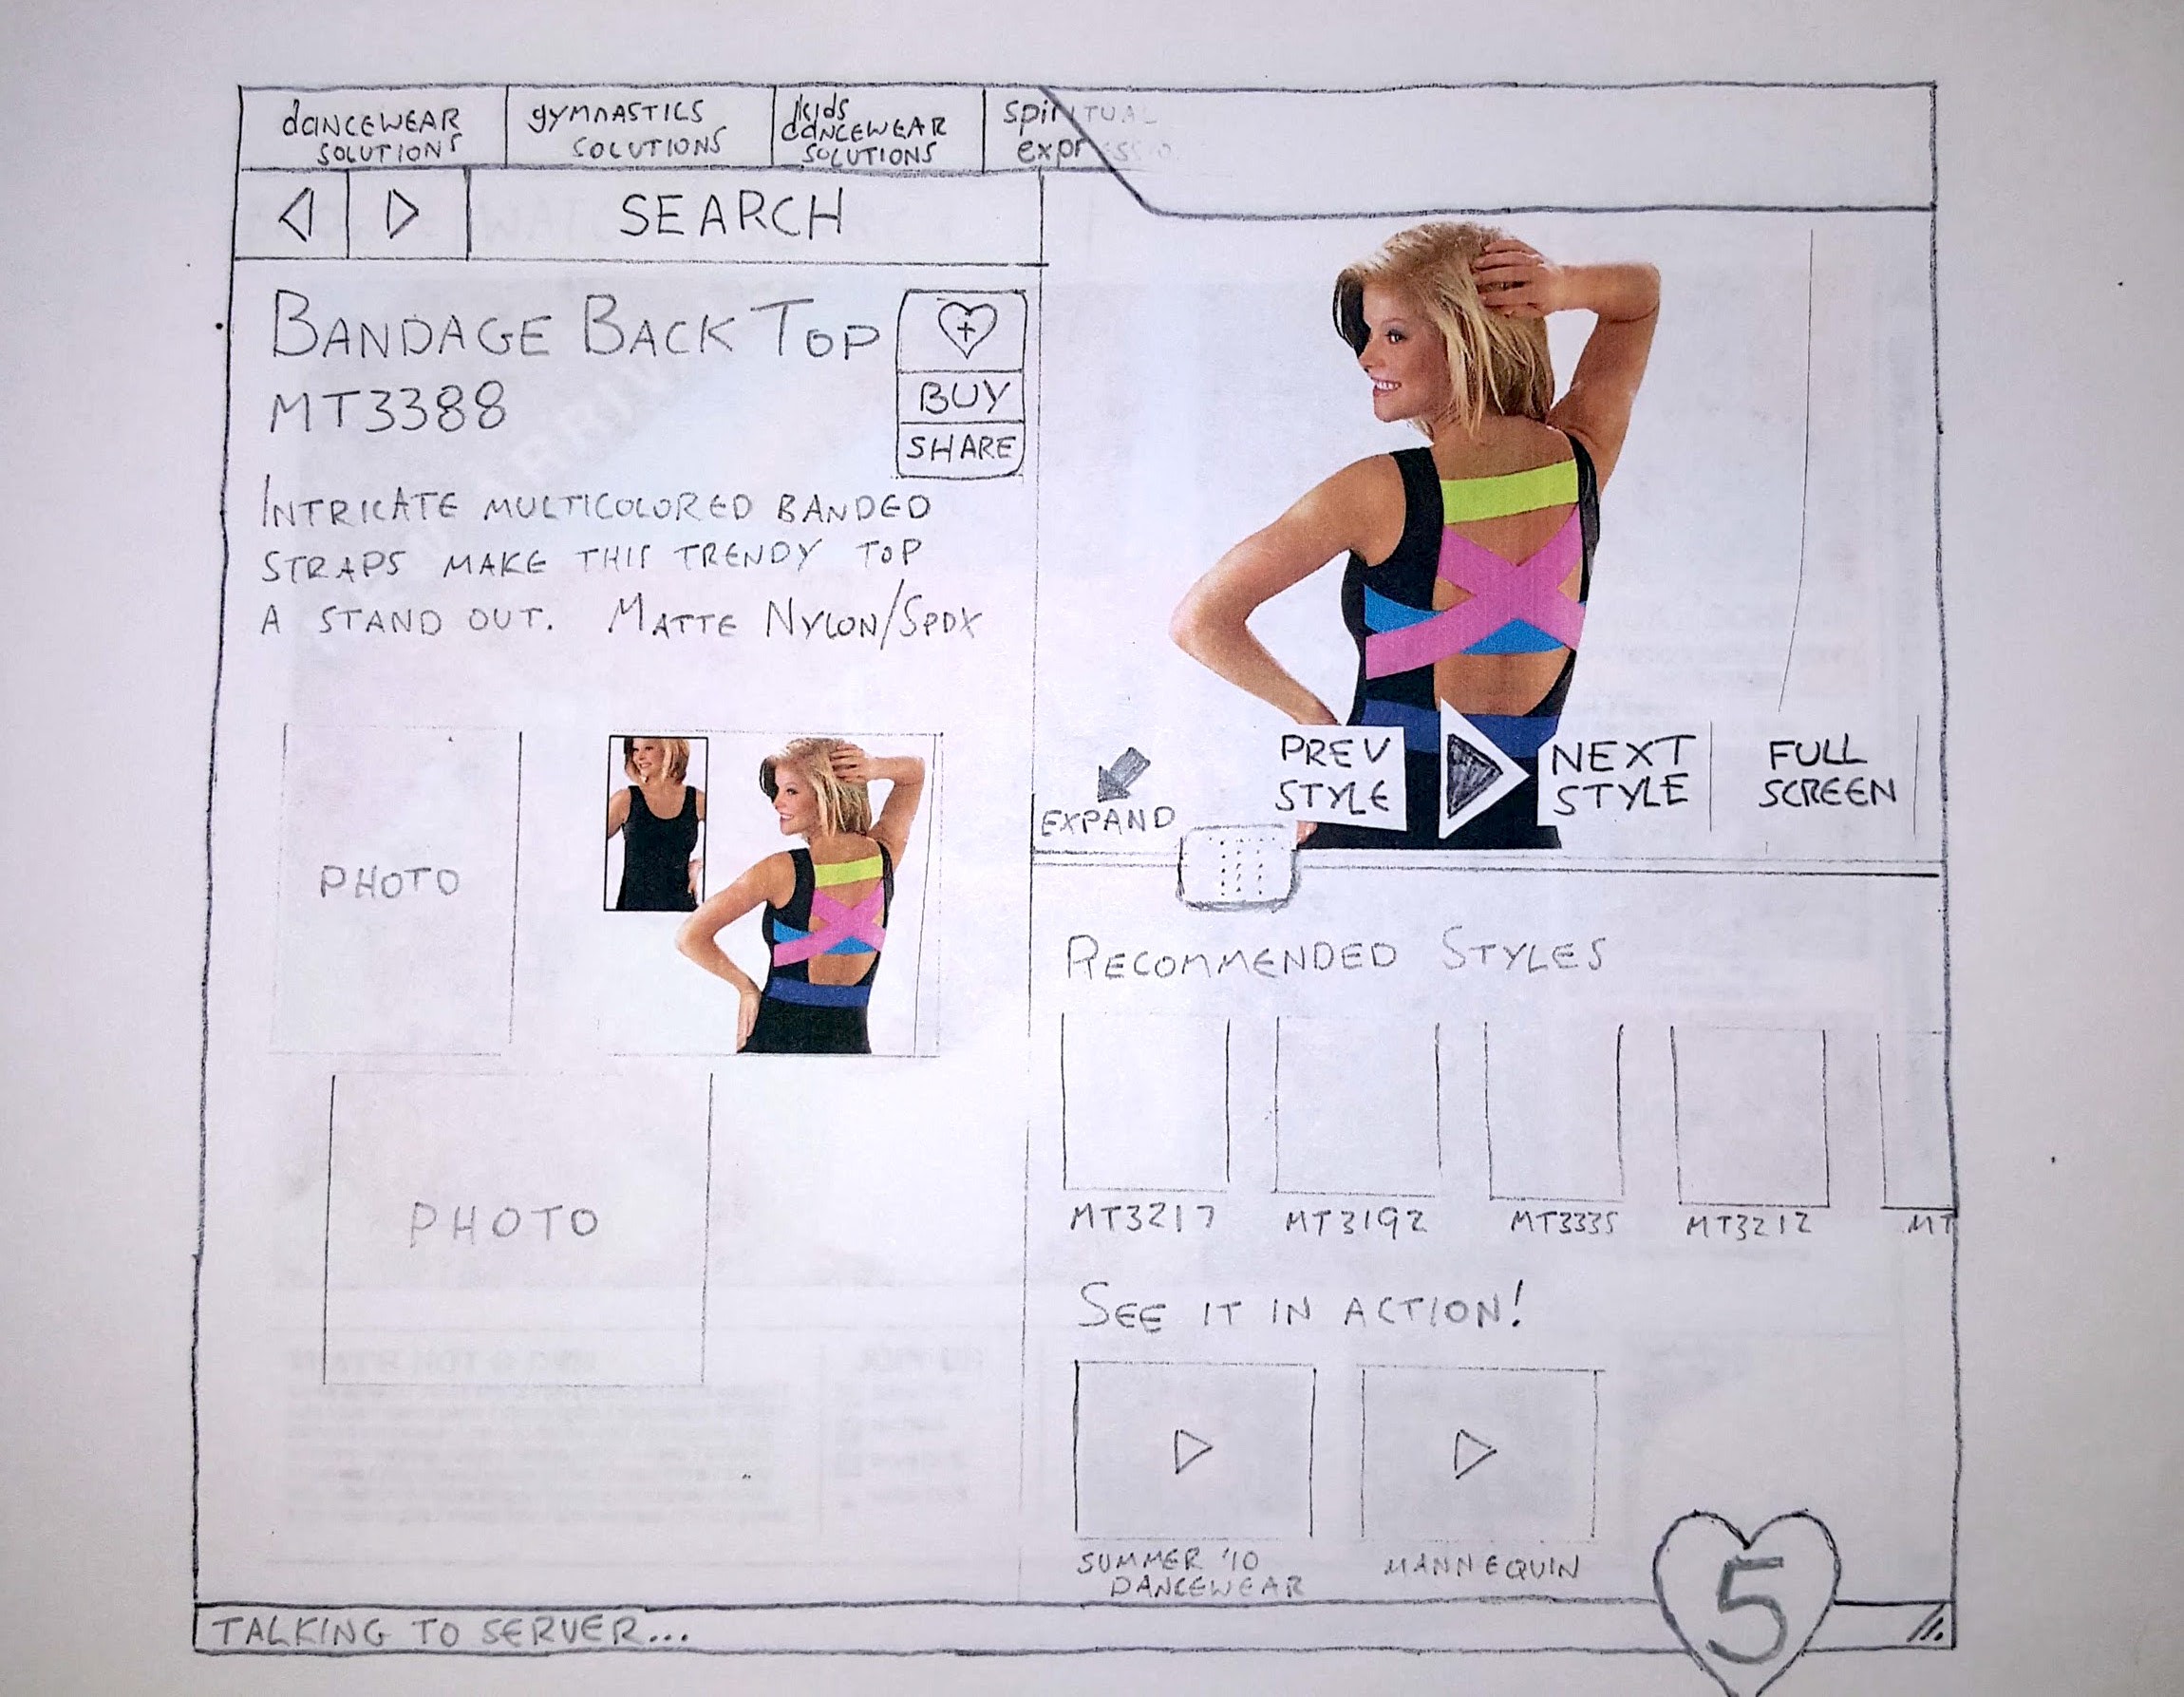 dancewear
solutions
gymnastics
solutions
kids
dancewear
solutions
spiritual
expressio
SEARCH
BANDAGE BACK TOP
MT3388
BUY
SHARE
INTRICATE MULTICOLORED BANDED
STRAPS MAKE THIS TRENDY TOP
A STAND OUT. MATTE NYLON/SPDX
PHOTO
PHOTO
EXPAND
PREV
STYLE
NEXT
STYLE
FULL
SCREEN
RECOMMENDED STYLES
MT3217
MT3192
MT3335
MT3212
MT
SEE IT IN ACTION!
SUMMER '10
DANCEWEAR
MANNEQUIN
5
TALKING TO SERVER...